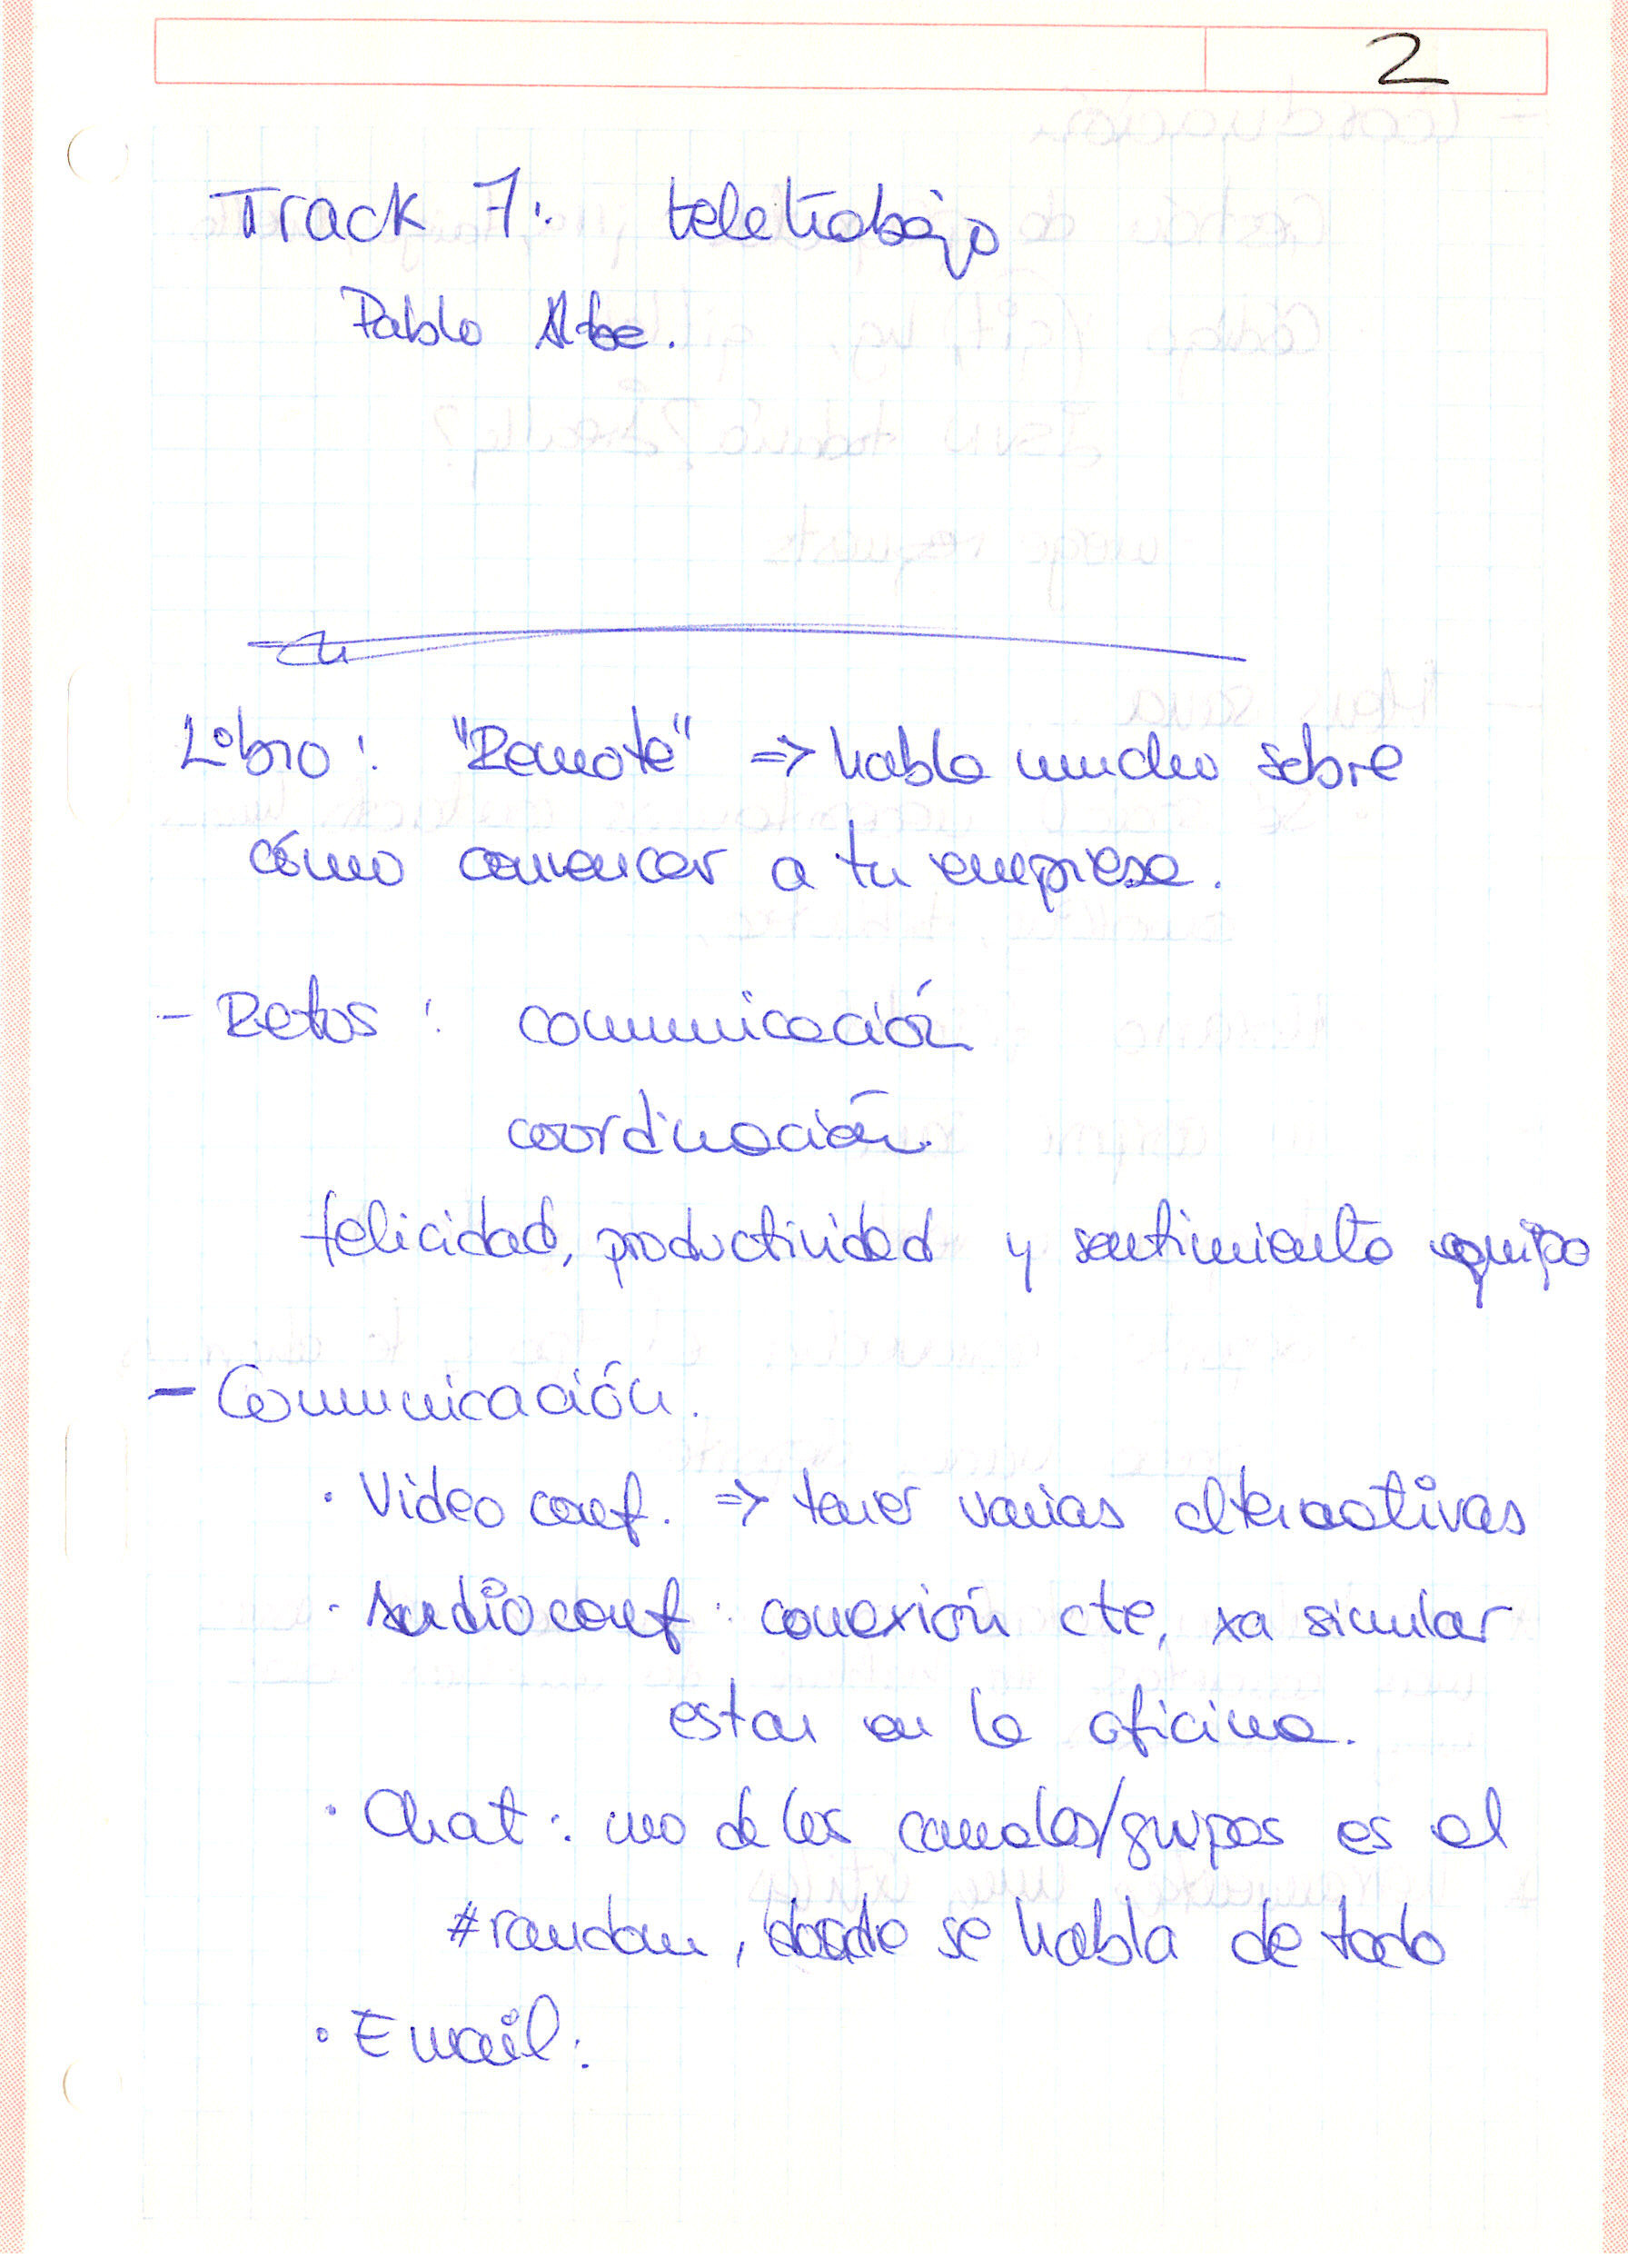 2
Track 7: teletrabajo
Pablo
Libro: "Remote" => habla mucho sobre
cómo convencer a tu empresa.
- Retos: comunicación
coordinación
felicidad, productividad y sentimiento equipo
- Comunicación.
· Video conf. => tener varias alternativas
· Audio conf: conexión cte, xa simular
estar en la oficina.
· Chat: uno de los canales/grupos es el
#random, donde se habla de todo
· Email: